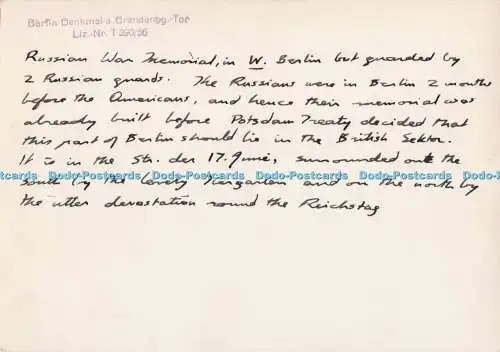 Berlin Denkmal a. Brandenbg.-Tor
Liz.-Nr. T 260/56
Russian War Memorial, in W. Berlin but guarded by
2 Russian guards. The Russians were in Berlin 2 months
before the Americans, and hence their memorial was
already built before Potsdam Treaty decided that
this part of Berlin should lie in the British Sektor.
It is in the Str. der 17. Juni, surrounded on the
Dodo-Postcards Dodo-Postcards Dodo-Postcards Dodo-Postcards
south by the lovely Tiergarten and on the north by
the utter devastation round the Reichstag